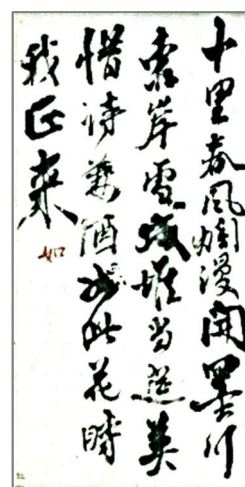 十里春風爛漫開墨川
東岸雪成堆当筵莫
惜詩兼酒如此花時
我正来
如